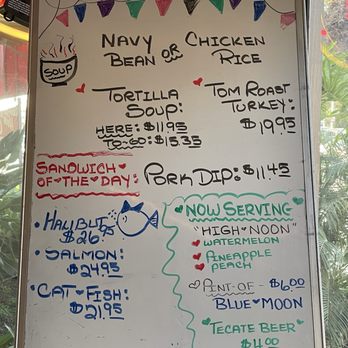 SOUP
NAVY BEAN OR CHICKEN RICE
TORTILLA SOUP:
HERE: $11.95
TO-GO: $15.35
TOM ROAST TURKEY:
$19.95
SANDWICH OF THE DAY:
PORK DIP: $11.45
HALIBUT
$26
SALMON:
$24.95
CAT FISH:
$21.95
NOW SERVING
"HIGH NOON"
WATERMELON
PINEAPPLE
PEACH
PINT-OF - $6.00
BLUE MOON
TECATE BEER
$4.00